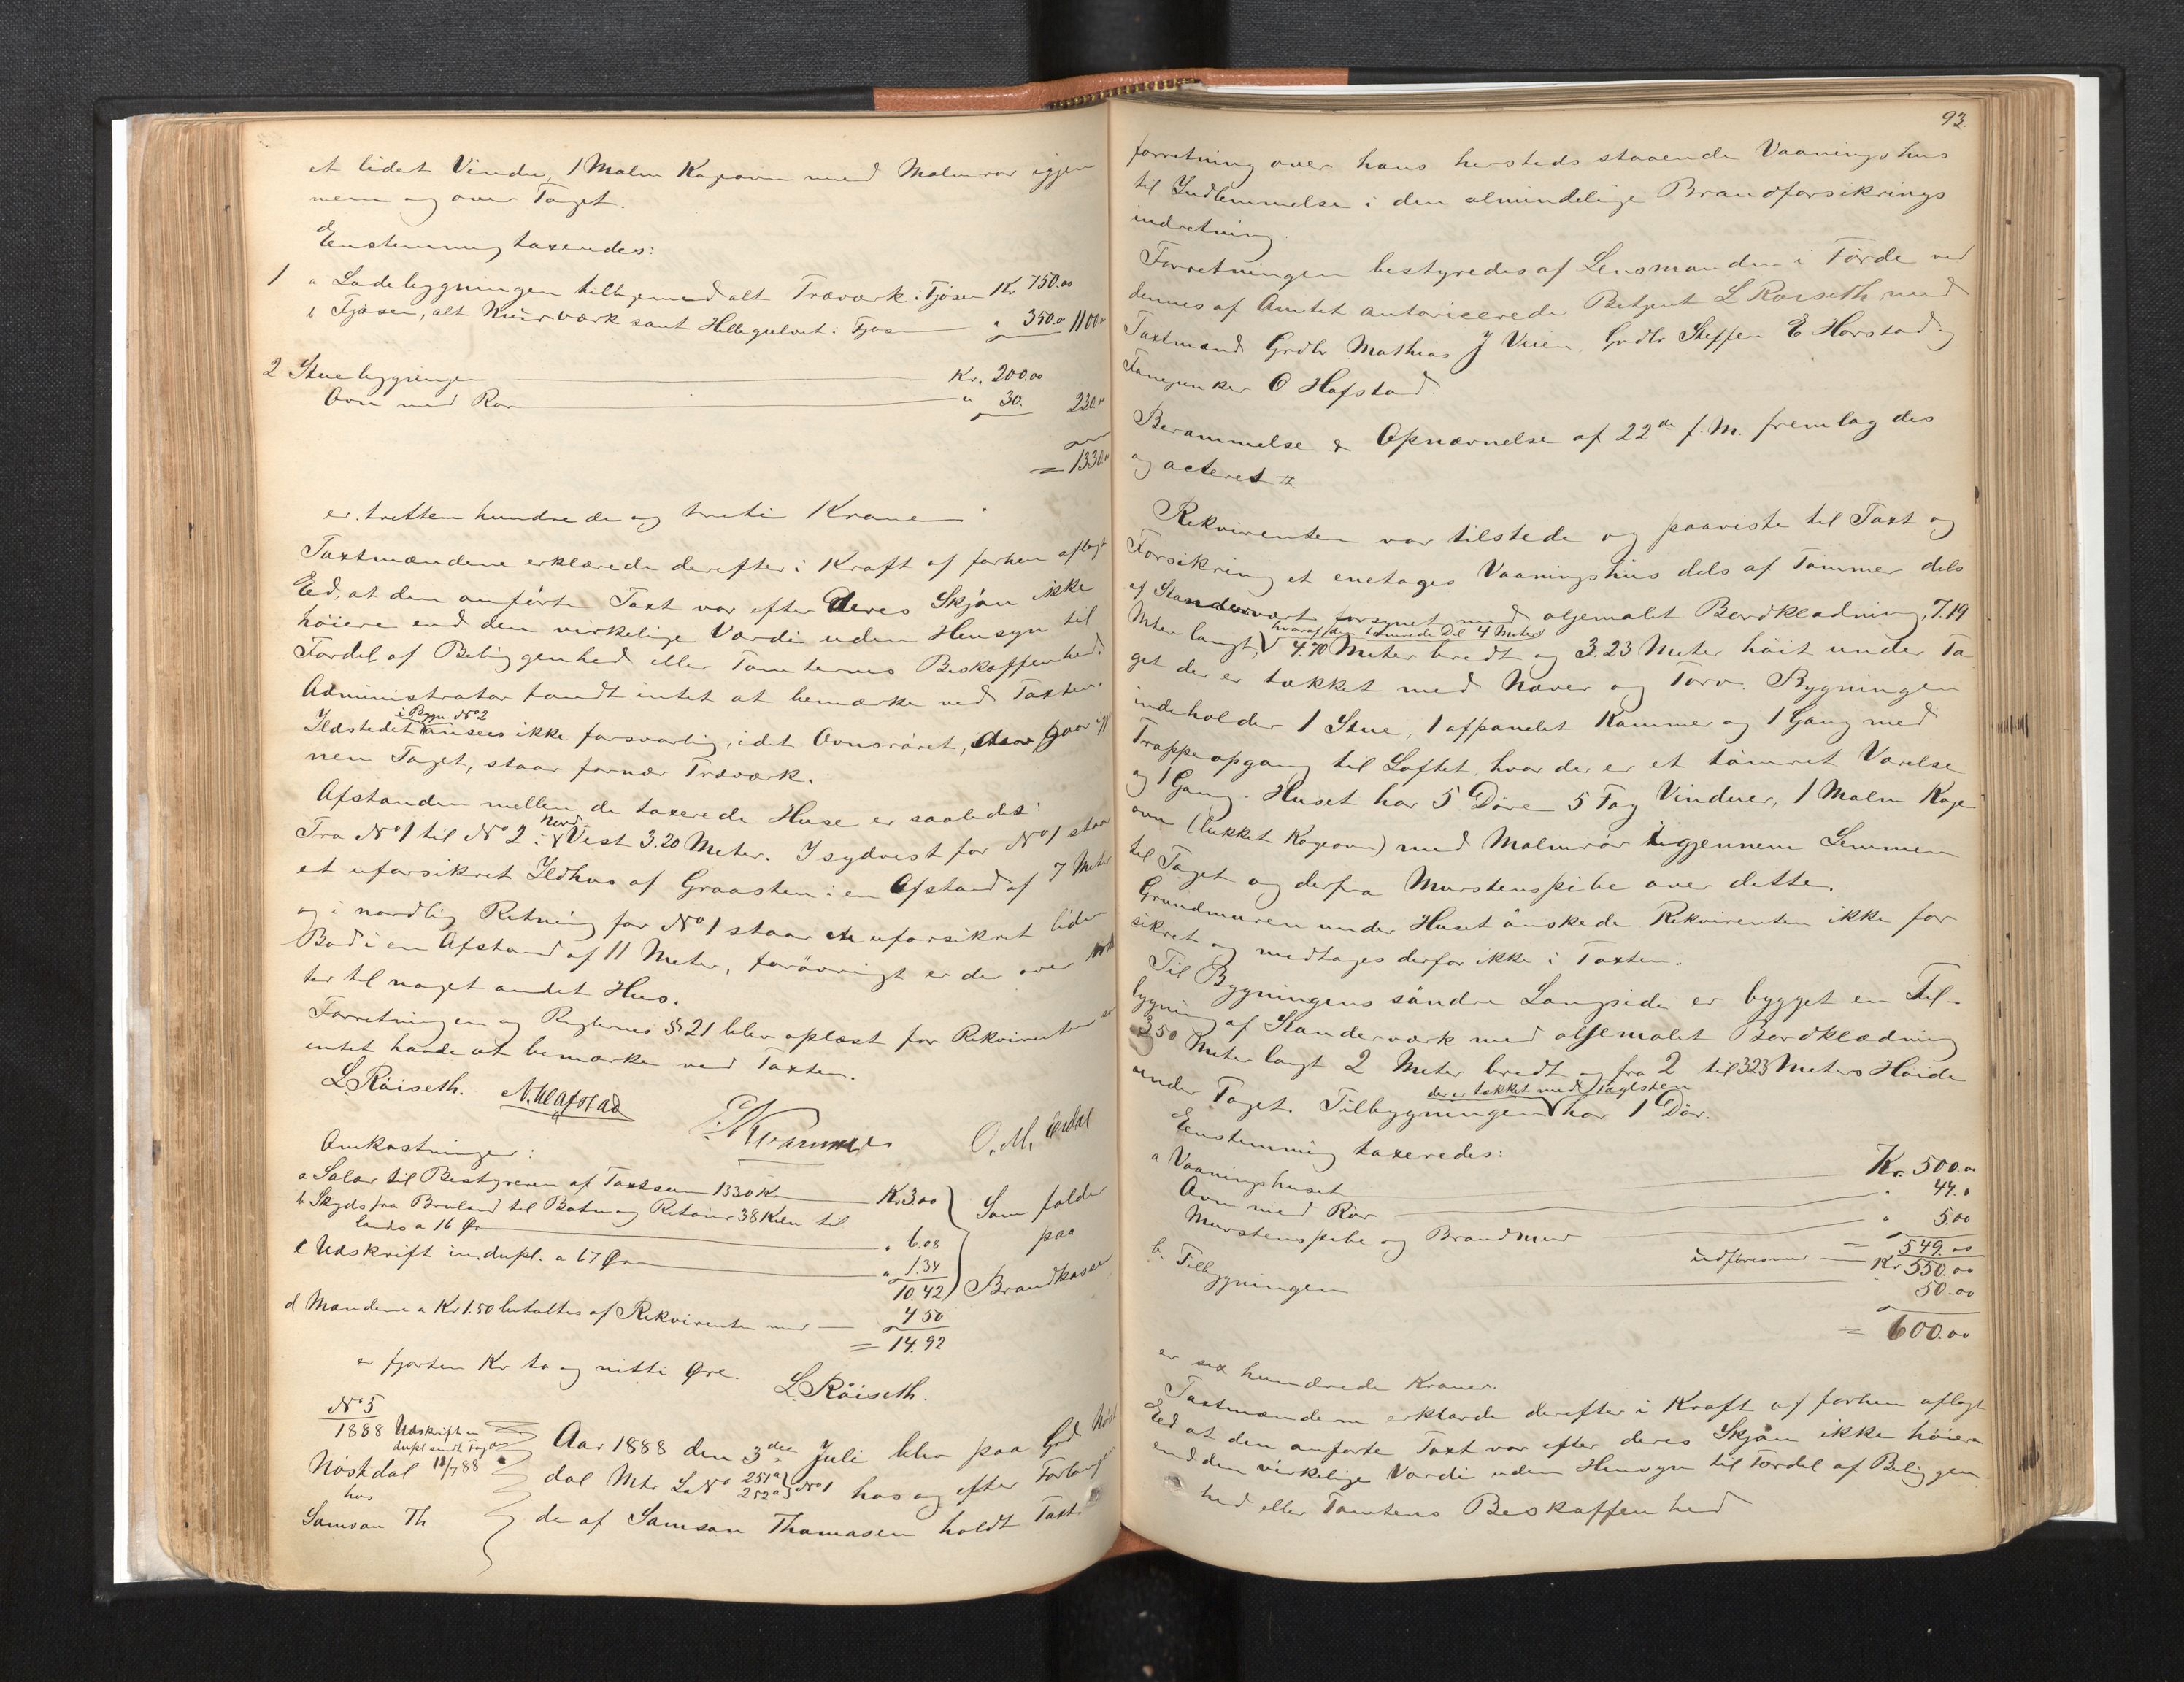 et lidet Vindu, 1 Malm Kogeovn med Malmrør igjen
nem og over Taget.
Eenstemmig taxeredes:
1 a Ladebygningen tilligemed alt Træværk i Fjøsen Kr 750.00
b Fjøsen, alt Muurværk samt Hellegulvet i Fjøsen " 350.00 1100.00
2 Stuebygningen Kr. 200.00
Ovn med Rør " 30. 230.00
= 1330.00
er tretten hundrede og treti Kroner
Taxtmændene erklærede derefter i Kraft af forhen aflagt
Eed, at den anførte Taxt var efter deres Skjøn ikke
høiere end den virkelige Værdi uden Hensyn til
Fordel af Beliggenhed eller Tomternes Beskaffenhed.
Administrator fandt intet at bemærke ved Taxten.
i Bygn. No 2
Ildstedet ansees ikke forsvarlig, idet Ovnsrøret, gaar igj
nem Taget, staar fornær Træværk.
Afstanden mellem de taxerede Huse er saaledes:
Nord
Fra No 1 til No 2 i Vest 3.20 Meter. I sydvest for No 1 staar
et uforsikret Ildhus af Graasten i en Afstand af 7 Meter
og i nordlig Retning for No 1 staar et uforsikret liden
Bod i en Afstand af 11 Meter, forøvrigt er der over
ter til noget andet Hus.
Forretningen og Reglernes § 21 blev oplæst for Rekvirenten
intet havde at bemærke ved Taxten.
L. Röiseth. N. Hafstad O. M. Erdal
Omkostninger:
a Salær til Bestyreren af Taxtsum 1330 Kr Kr 3.00 Som falder
b Skyds fra Bruland til Botn og Retour 38 Kilm til
lands a 16 Øre " 6.08 paa
c Udskrift in dupl. a 67 Øre " 1.34
10.42 Brandkassen
d Mændene a Kr 1.50 betaltes af Rekvirenten med 4 50
= 14.92
er fjorten Kr to og nitti Øre.
L. Röiseth.
No 5
1888 Udskrift in
dupl sendt Foged
18/7 88
Nøskdal
hos
Samson Th
Aar 1888 den 3die Juli blev paa Grd Nøsk
dal Mtr LNo 251a 252a No 1 hos og efter Forlangen
de af Samson Thomasen holdt Taxt
93.
forretning over hans hersteds staaende Vaaningshus
til Indlemmelse i den almindelige Brandforsikrings
indretning.
Forretningen bestyredes af Lensmanden i Førde ved
dennes af Amtet autoricerede Betjent L Røiseth med
Taxtmænd Grdbr Mathias J Veien Grdbr Steffen E Horstad og
Fanejunker O Hafstad.
Berammelse & Opnævnelse af 22de f. M. fremlagdes
og acteret #
Rekvirenten var tilstede og paaviste til Taxt og
Forsikring et enetages Vaaningshus dels af Tømmer dels
af Standerværk forsynet med oljemalet Bordklædning, 7.19
hvoraf den tømrede Del 4 Meter
Meter langt, 4.70 Meter bredt og 3.23 Meter høit under Ta
get der er tækket med Næver og Torv. Bygningen
indeholder 1 Stue, 1 afpanelet Kammer og 1 Gang med
Trappeopgang til Loftet, hvor der er et tømret Værelse
og 1 Gang. Huset har 5 Døre 5 Fag Vinduer, 1 Malm Koge
ovn (lukket Kogeovn) med Malmrør igjennem Lemmen
til Taget og derfra Murstenspibe over dette.
Grundmuren under Huset ønskede Rekvirenten ikke for
sikret og medtages derfor ikke i Taxten.
Til Bygningens søndre Langside er bygget en Til-
bygning af Standerværk med oljemalet Bordklædning
3.50 Meter langt 2 Meter bredt og fra 2 til 3.23 Meters Høide
der er tækket med Taglsten
under Taget. Tilbygningen har 1 Dør.
Eenstemmig taxeredes:
a Vaaningshuset Kr. 500.00
Ovn med Rør " 44.0
Murstenspibe og Brandmur " 5.00
= 549.00
udføres med Kr 550.00
b. Tilbygningen 50.00
= 600.00
er sex hundrede Kroner.
Taxtmændene erklærede derefter i Kraft af forhen aflagt
Eed at den anførte Taxt var efter deres Skjøn ikke høiere
end den virkelige Værdi uden Hensyn til Fordel af Beliggen
hed eller Tomtens Beskaffenhed